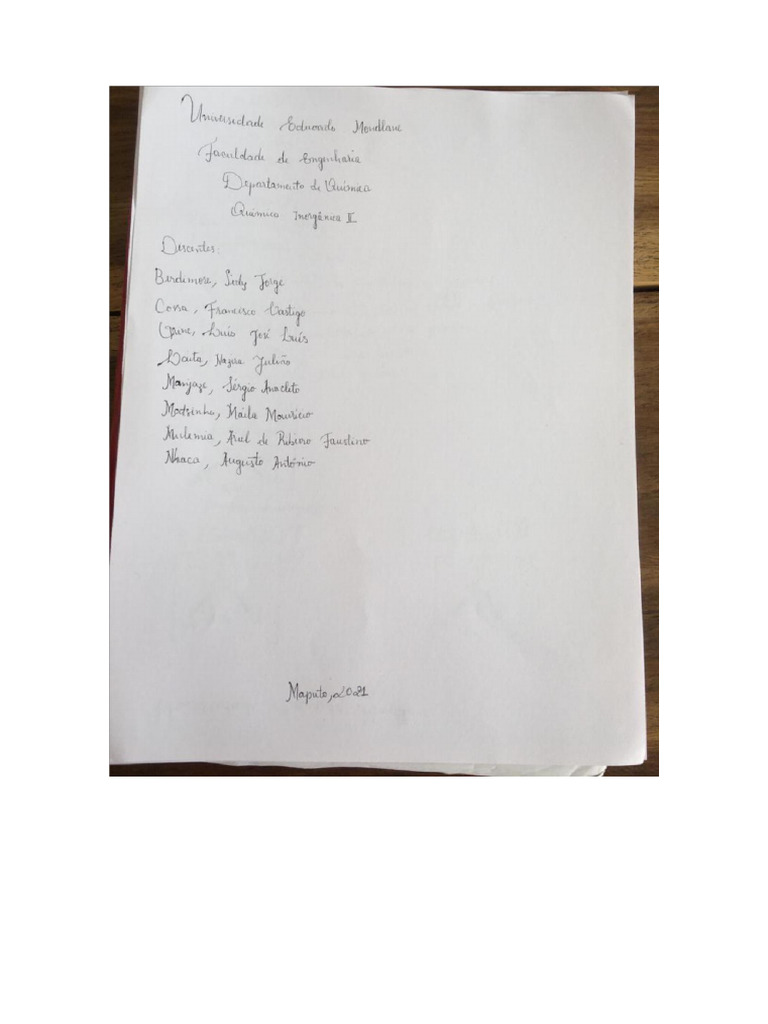 Universidade Eduardo Mondlane
Faculdade de Engenharia
Departamento de Química
Química Inorgânica II
Descentes:
Berdimose, Siedy Jorge
Cossa, Francisco Castigo
Luís José Luís
Nazira Julião
Manjaze, Sérgio Anacleto
Matsinhe, Máila Maurício
Ariel de Ribiero Faustino
Nhaca, Augusto António
Maputo, 2021